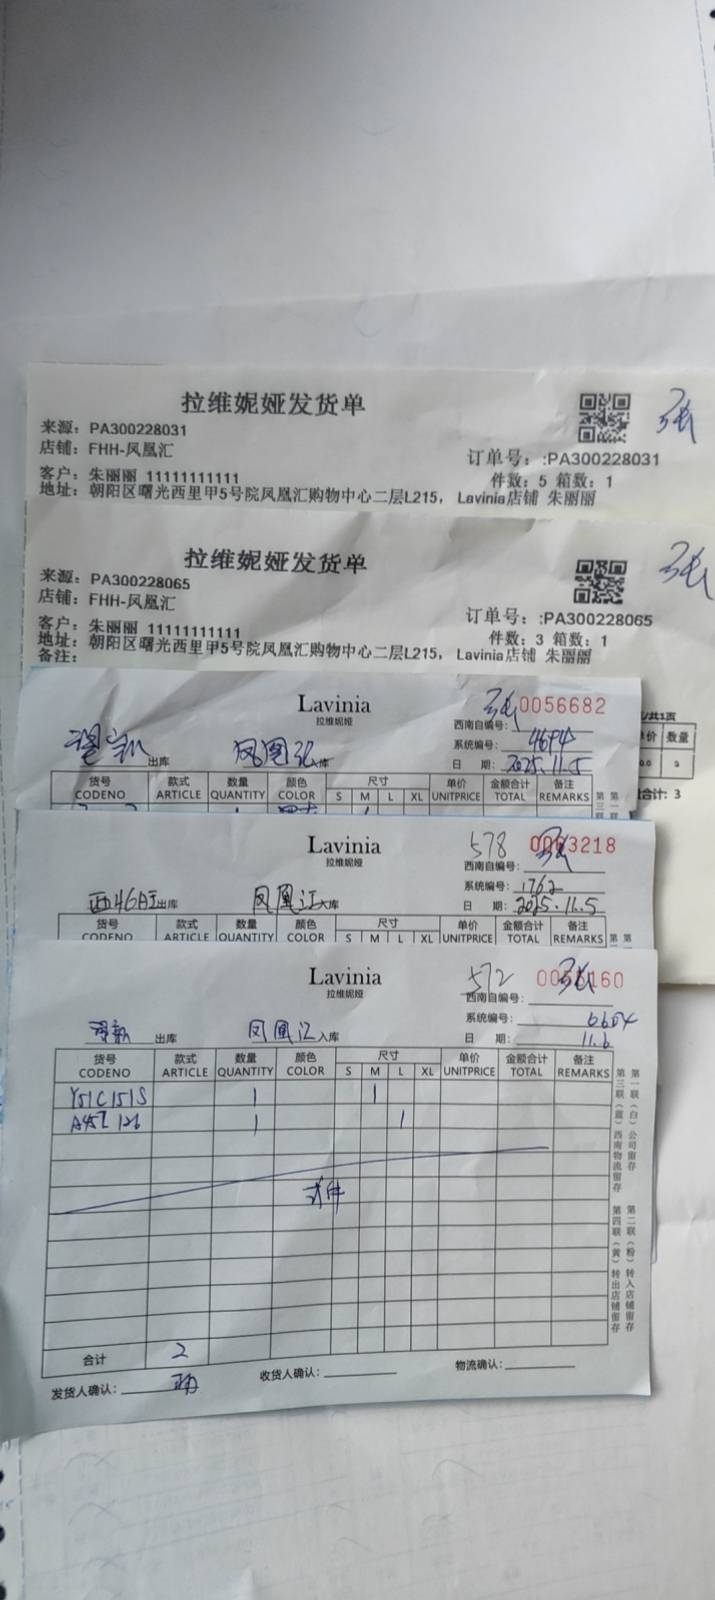 拉维妮娅发货单
来源：PA300228031
店铺：FHH-凤凰汇
订单号：:PA300228031
客户：朱丽丽 11111111111
件数：5 箱数：1
地址：朝阳区曙光西里甲5号院凤凰汇购物中心二层L215， Lavinia店铺 朱丽丽
拉维妮娅发货单
来源：PA300228065
店铺：FHH-凤凰汇
订单号：:PA300228065
客户：朱丽丽 11111111111
件数：3 箱数：1
地址：朝阳区曙光西里甲5号院凤凰汇购物中心二层L215， Lavinia店铺 朱丽丽
备注：
/共1页
价 数量
合计：3
Lavinia
拉维妮娅
0056682
西南自编号：
系统编号：4694
出库 凤凰汇入库
日 期：2025.11.5
货号 款式 数量 颜色 尺寸 单价 金额合计 备注
CODENO ARTICLE QUANTITY COLOR S M L XL UNITPRICE TOTAL REMARKS
Lavinia
拉维妮娅
578
3218
西南自编号：
系统编号：1762
出库 凤凰汇入库
日 期：2025.11.5
货号 款式 数量 颜色 尺寸 单价 金额合计 备注
CODENO ARTICLE QUANTITY COLOR S M L XL UNITPRICE TOTAL REMARKS
Lavinia
拉维妮娅
572
160
西南自编号：
系统编号：6604
出库 凤凰汇入库
日 期：11.6
货号 款式 数量 颜色 尺寸 单价 金额合计 备注
CODENO ARTICLE QUANTITY COLOR S M L XL UNITPRICE TOTAL REMARKS
Y51C151S 1 1
1 1
合计 2
发货人确认： 收货人确认： 物流确认：
第一联（白）公司留存
第二联（粉）转入店铺留存
第三联（蓝）西南物流留存
第四联（黄）转出店铺留存